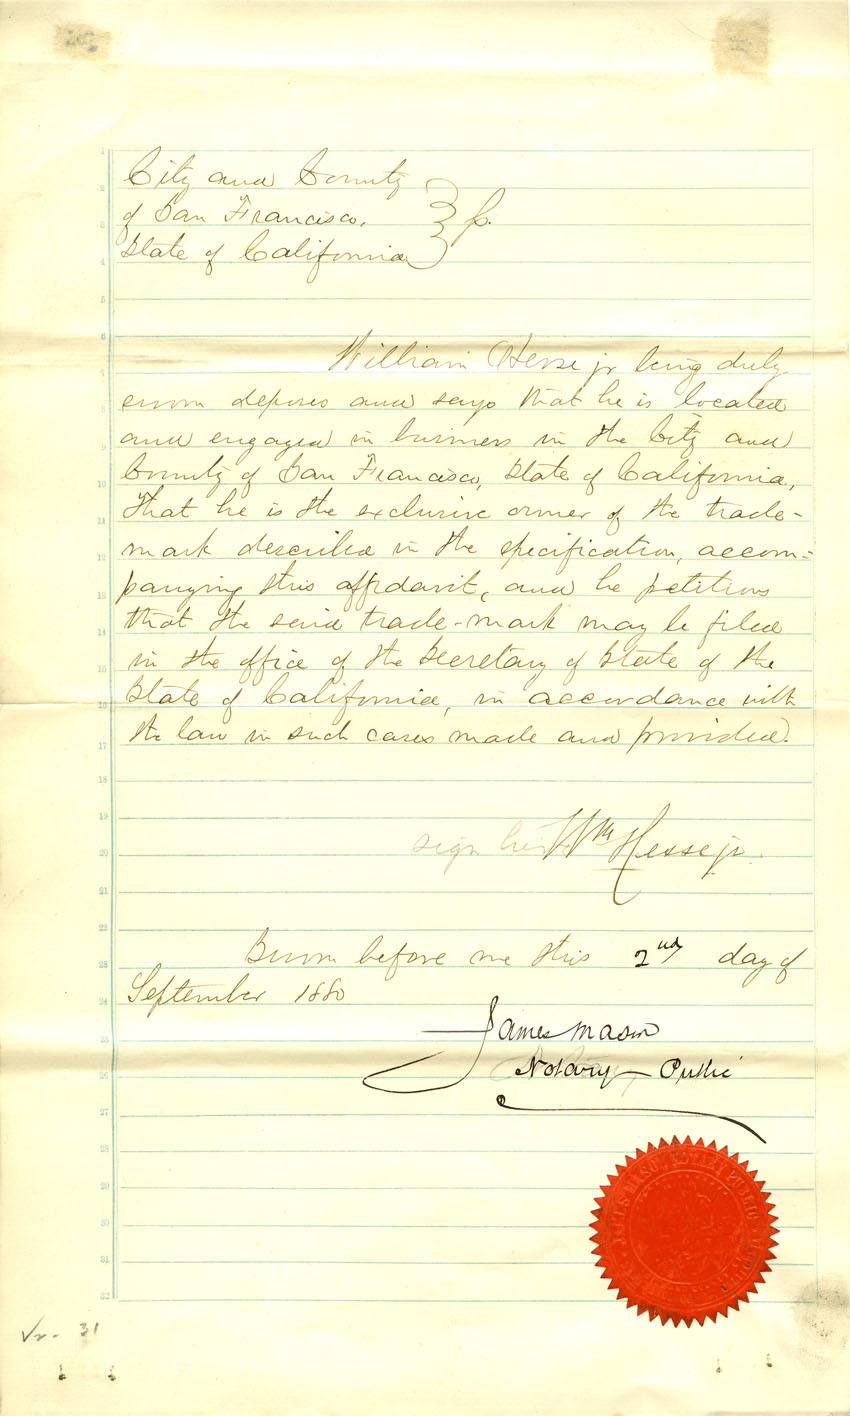 City and County
of San Francisco,
State of California
William Hesse jr being duly
sworn deposes and says that he is located
and engaged in business in the City and
County of San Francisco, State of California,
that he is the exclusive owner of the trade-
mark described in the specification, accom-
panying this affidavit, and he petitions
that the said trade-mark may be filed
in the office of the Secretary of State of the
State of California, in accordance with
the law in such cases made and provided.
sign here Wm Hesse jr.
Sworn before me this 2nd day of
September 1880
James Mason
Notary Public
31
1
2
3
4
5
6
7
8
9
10
11
12
13
14
15
16
17
18
19
20
21
22
23
24
25
26
27
28
29
30
31
32